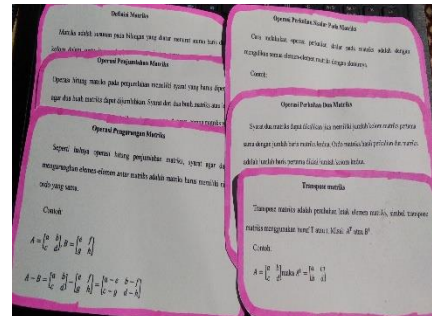 Definisi Matriks
Matriks adalah susunan pada bilangan yang diatur menurut aturan baris d
kolom dalam
Operasi Penjumlahan Matriks
Operasi hitung matriks pada penjumlahan memiliki syarat yang harus dipen
agar dua buah matriks dapat dijumlahkan. Syarat dari dua buah matriks atau
Operasi Pengurangan Matriks
Seperti halnya operasi hitung penjumlahan matriks, syarat agar da
mengurangkan elemen-elemen antar matriks adalah matriks harus memiliki n
ordo yang sama.
Contoh
A = [a b c d], B = [e f g h]
A − B = [a b c d] − [e f g h] = [a − e b − f c − g d − h]
Operasi Perkalian Skalar Pada Matriks
Cara melakukan operasi perkalian skalar pada matriks adalah dengan
mengalikan semua elemen-elemen matriks dengan skalarnya.
Contoh:
Operasi Perkalian Dua Matriks
Syarat dua matriks dapat dikalikan jika memiliki jumlah kolom matriks pertama
sama dengan jumlah baris matriks kedua. Ordo matriks hasil perkalian dua matriks
adalah jumlah baris pertama dikali jumlah kolom kedua.
Transpose matriks
Transpose matriks adalah perubahan letak elemen matriks, simbol transpose
matriks menggunakan huruf T atau t. Misal: Aᵀ atau Bᵗ
Contoh: